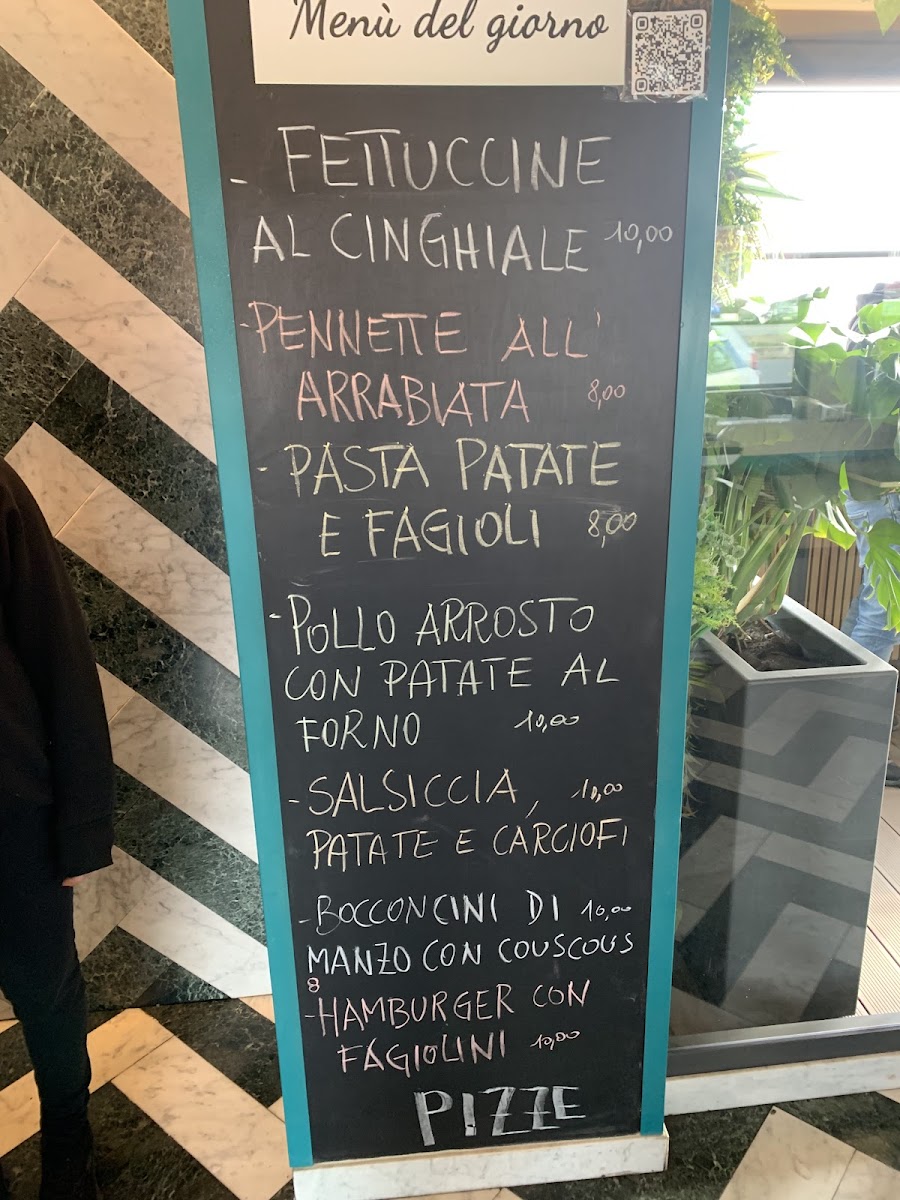 Menù del giorno
- FETTUCCINE
AL CINGHIALE 10,00
- PENNETTE ALL'
ARRABIATA 8,00
- PASTA PATATE
E FAGIOLI 8,00
- POLLO ARROSTO
CON PATATE AL
FORNO 10,00
- SALSICCIA, 10,00
PATATE E CARCIOFI
- BOCCONCINI DI 10,00
MANZO CON COUSCOUS
8
- HAMBURGER CON
FAGIOLINI 10,00
PIZZE